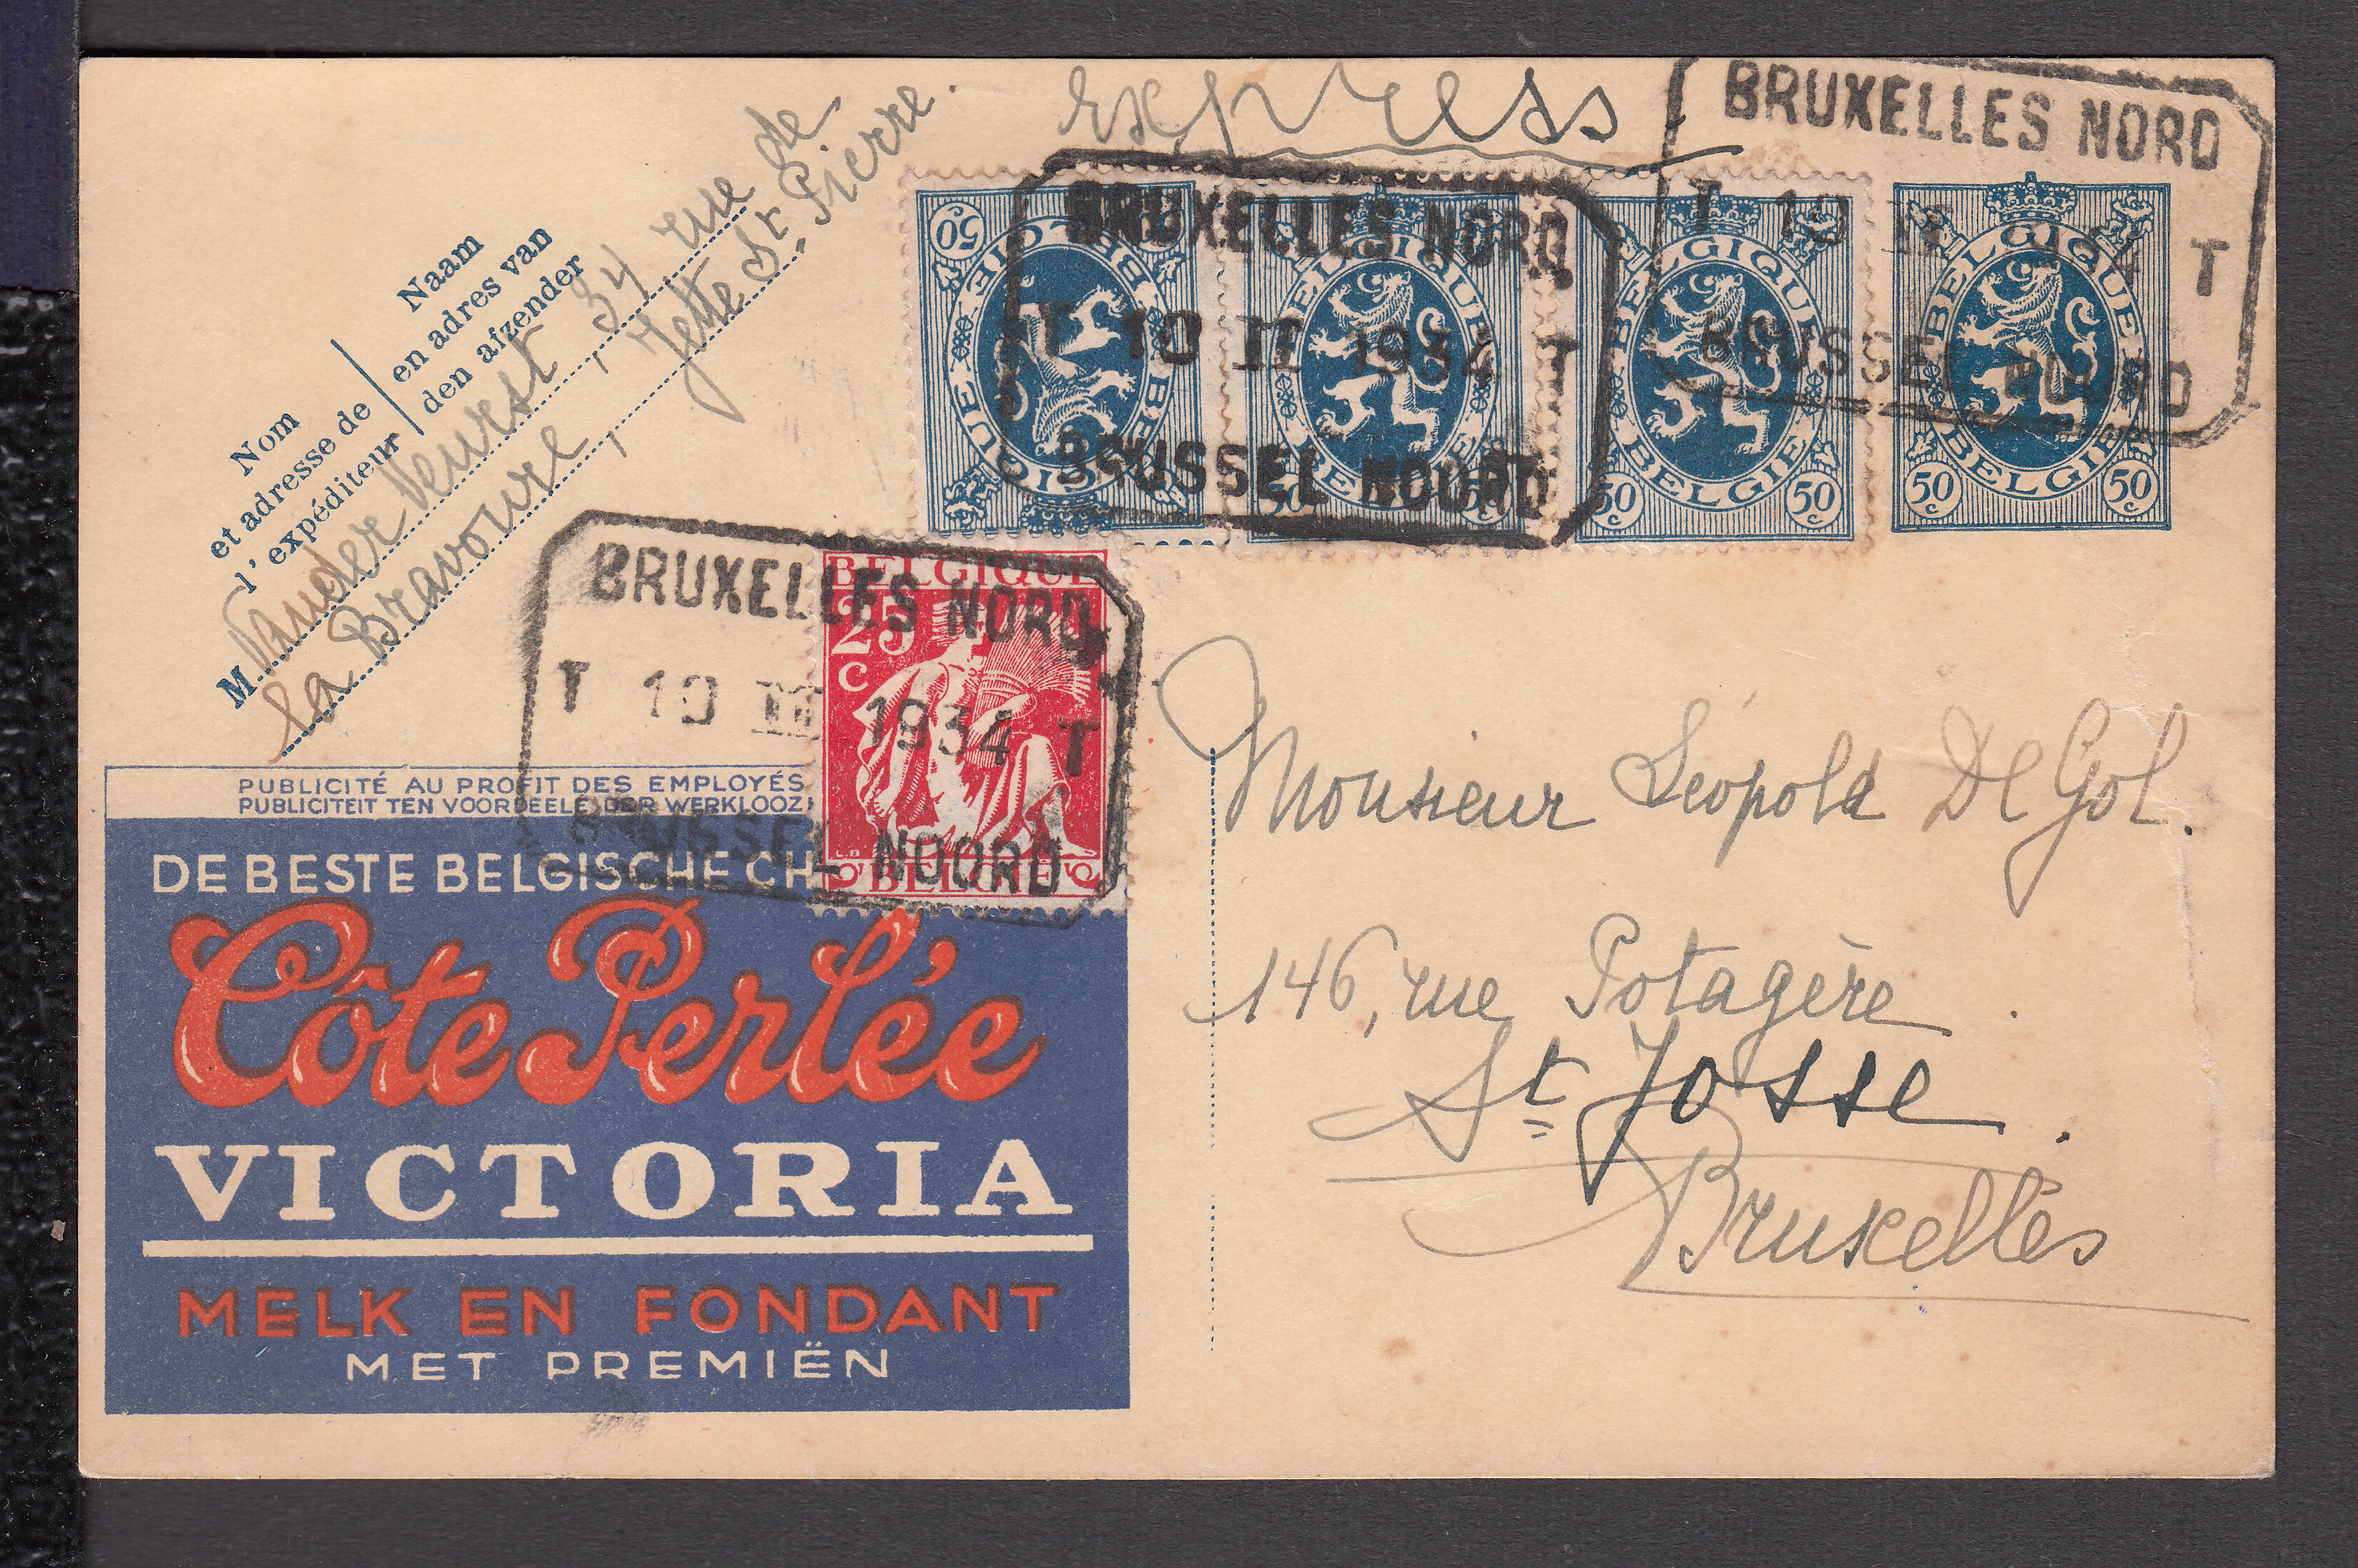 express
BRUXELLES NORD
T 10 II T
BRUSSEL NOORD
BRUXELLES NORD
T 10 II 1934 T
BRUSSEL NOORD
50c BELGIQUE BELGIE
BELGIQUE BELGIE 50c 50c
BELGIQUE BELGIE 50c 50c
BELGIQUE BELGIE 50c 50c
Nom
et adresse de
l'expéditeur
Naam
en adres van
den afzender
M. Vander Veurst, 34 rue de
la Bravoure, Jette St. Pierre.
BRUXELLES NORD
T 10 II 1934 T
BRUSSEL NOORD
BELGIQUE
25
c
BELGIE
PUBLICITÉ AU PROFIT DES EMPLOYÉS
PUBLICITEIT TEN VOORDEELE DER WERKLOOZ
DE BESTE BELGISCHE CH
Côte Perlée
VICTORIA
MELK EN FONDANT
MET PREMIËN
Monsieur Léopold De Gol.
146, rue Potagère
St Josse.
Bruxelles